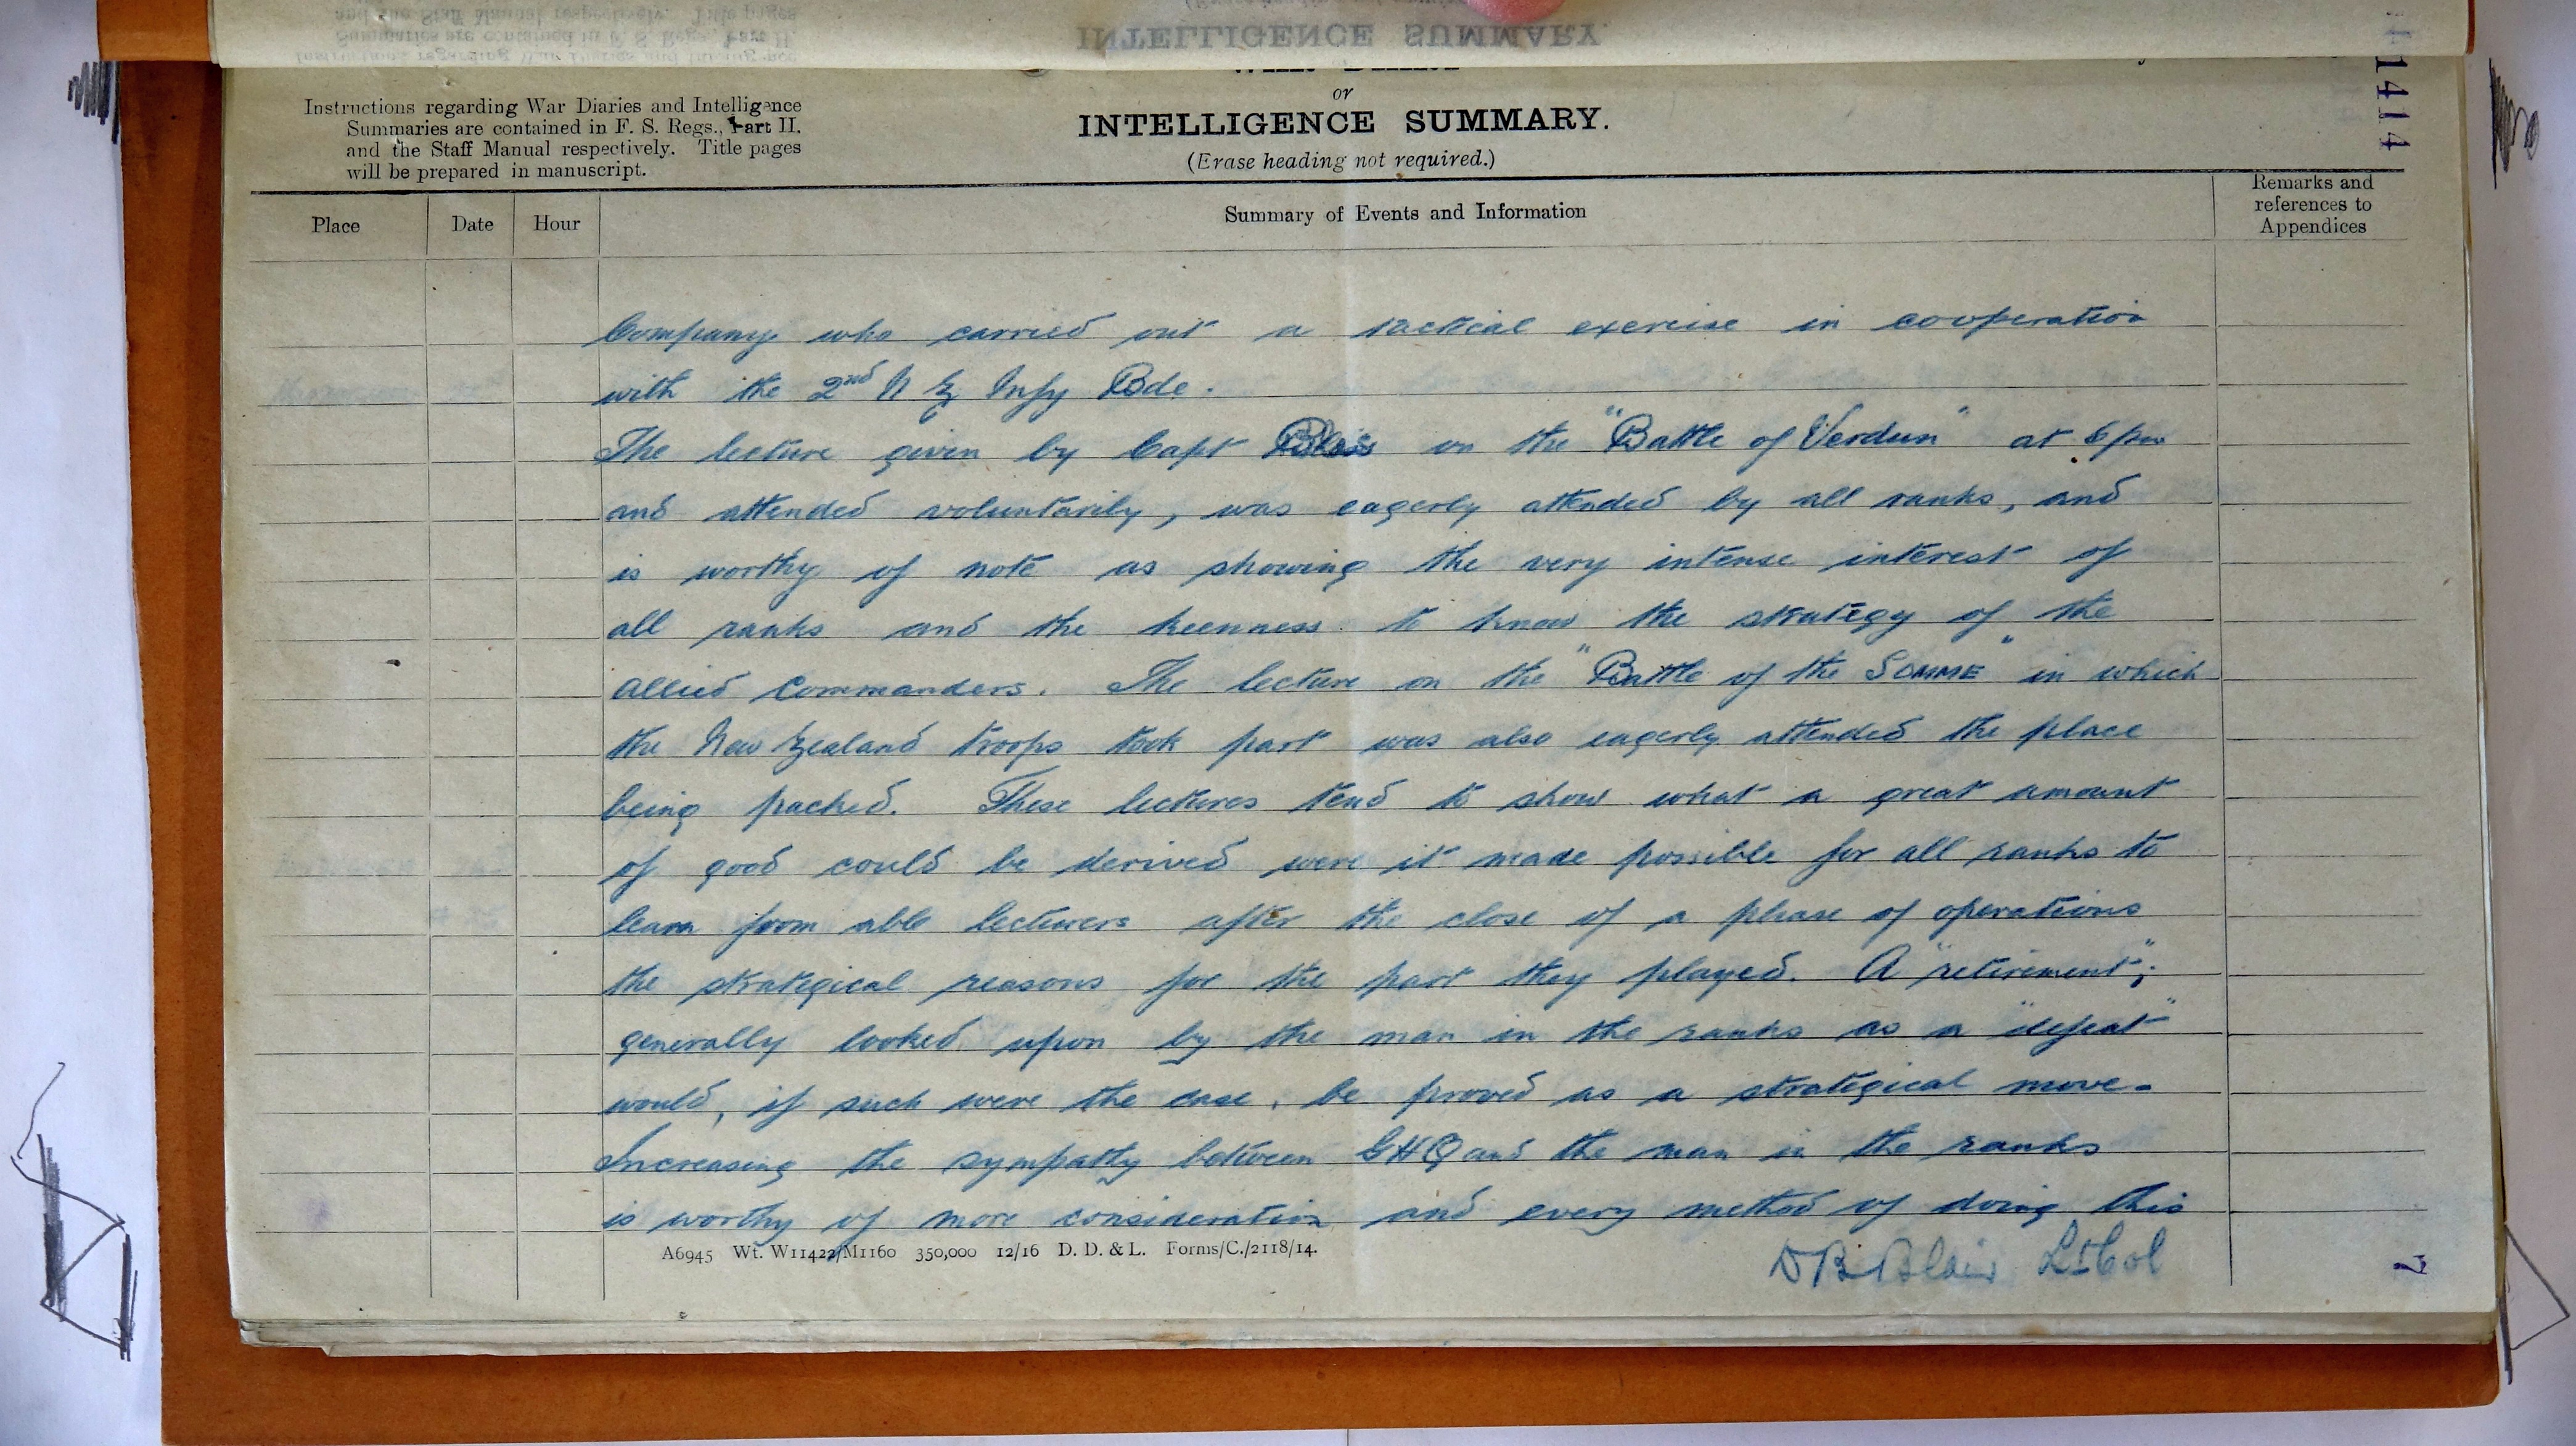 INTELLIGENCE SUMMARY.
Instructions regarding War Diaries and Intelligence
Summaries are contained in F. S. Regs., Part II.
and the Staff Manual respectively. Title pages
will be prepared in manuscript.
or
INTELLIGENCE SUMMARY.
(Erase heading not required.)
1414
Place
Date
Hour
Summary of Events and Information
Remarks and
references to
Appendices
Company who carried out a tactical exercise in cooperation
with the 2nd N Z Infy Bde.
The lecture given by Capt on the "Battle of Verdun" at 6 pm
and attended voluntarily, was eagerly attended by all ranks, and
is worthy of note as showing the very intense interest of
all ranks and the keenness to know the strategy of the
allied commanders. The lecture on the "Battle of the SOMME" in which
the New Zealand troops took part was also eagerly attended the place
being packed. These lectures tend to show what a great amount
of good could be derived were it made possible for all ranks to
learn from able lecturers after the close of a phase of operations
the strategical reasons for the part they played. A "retirement",
generally looked upon by the man in the ranks as a "defeat"
would, if such were the case, be proved as a strategical move.
Increasing the sympathy between GHQ and the man in the ranks
is worthy of more consideration and every method of doing this
A6945 Wt. W11422/M1160 350,000 12/16 D. D. & L. Forms/C./2118/14.
D B Blair Lt Col
7